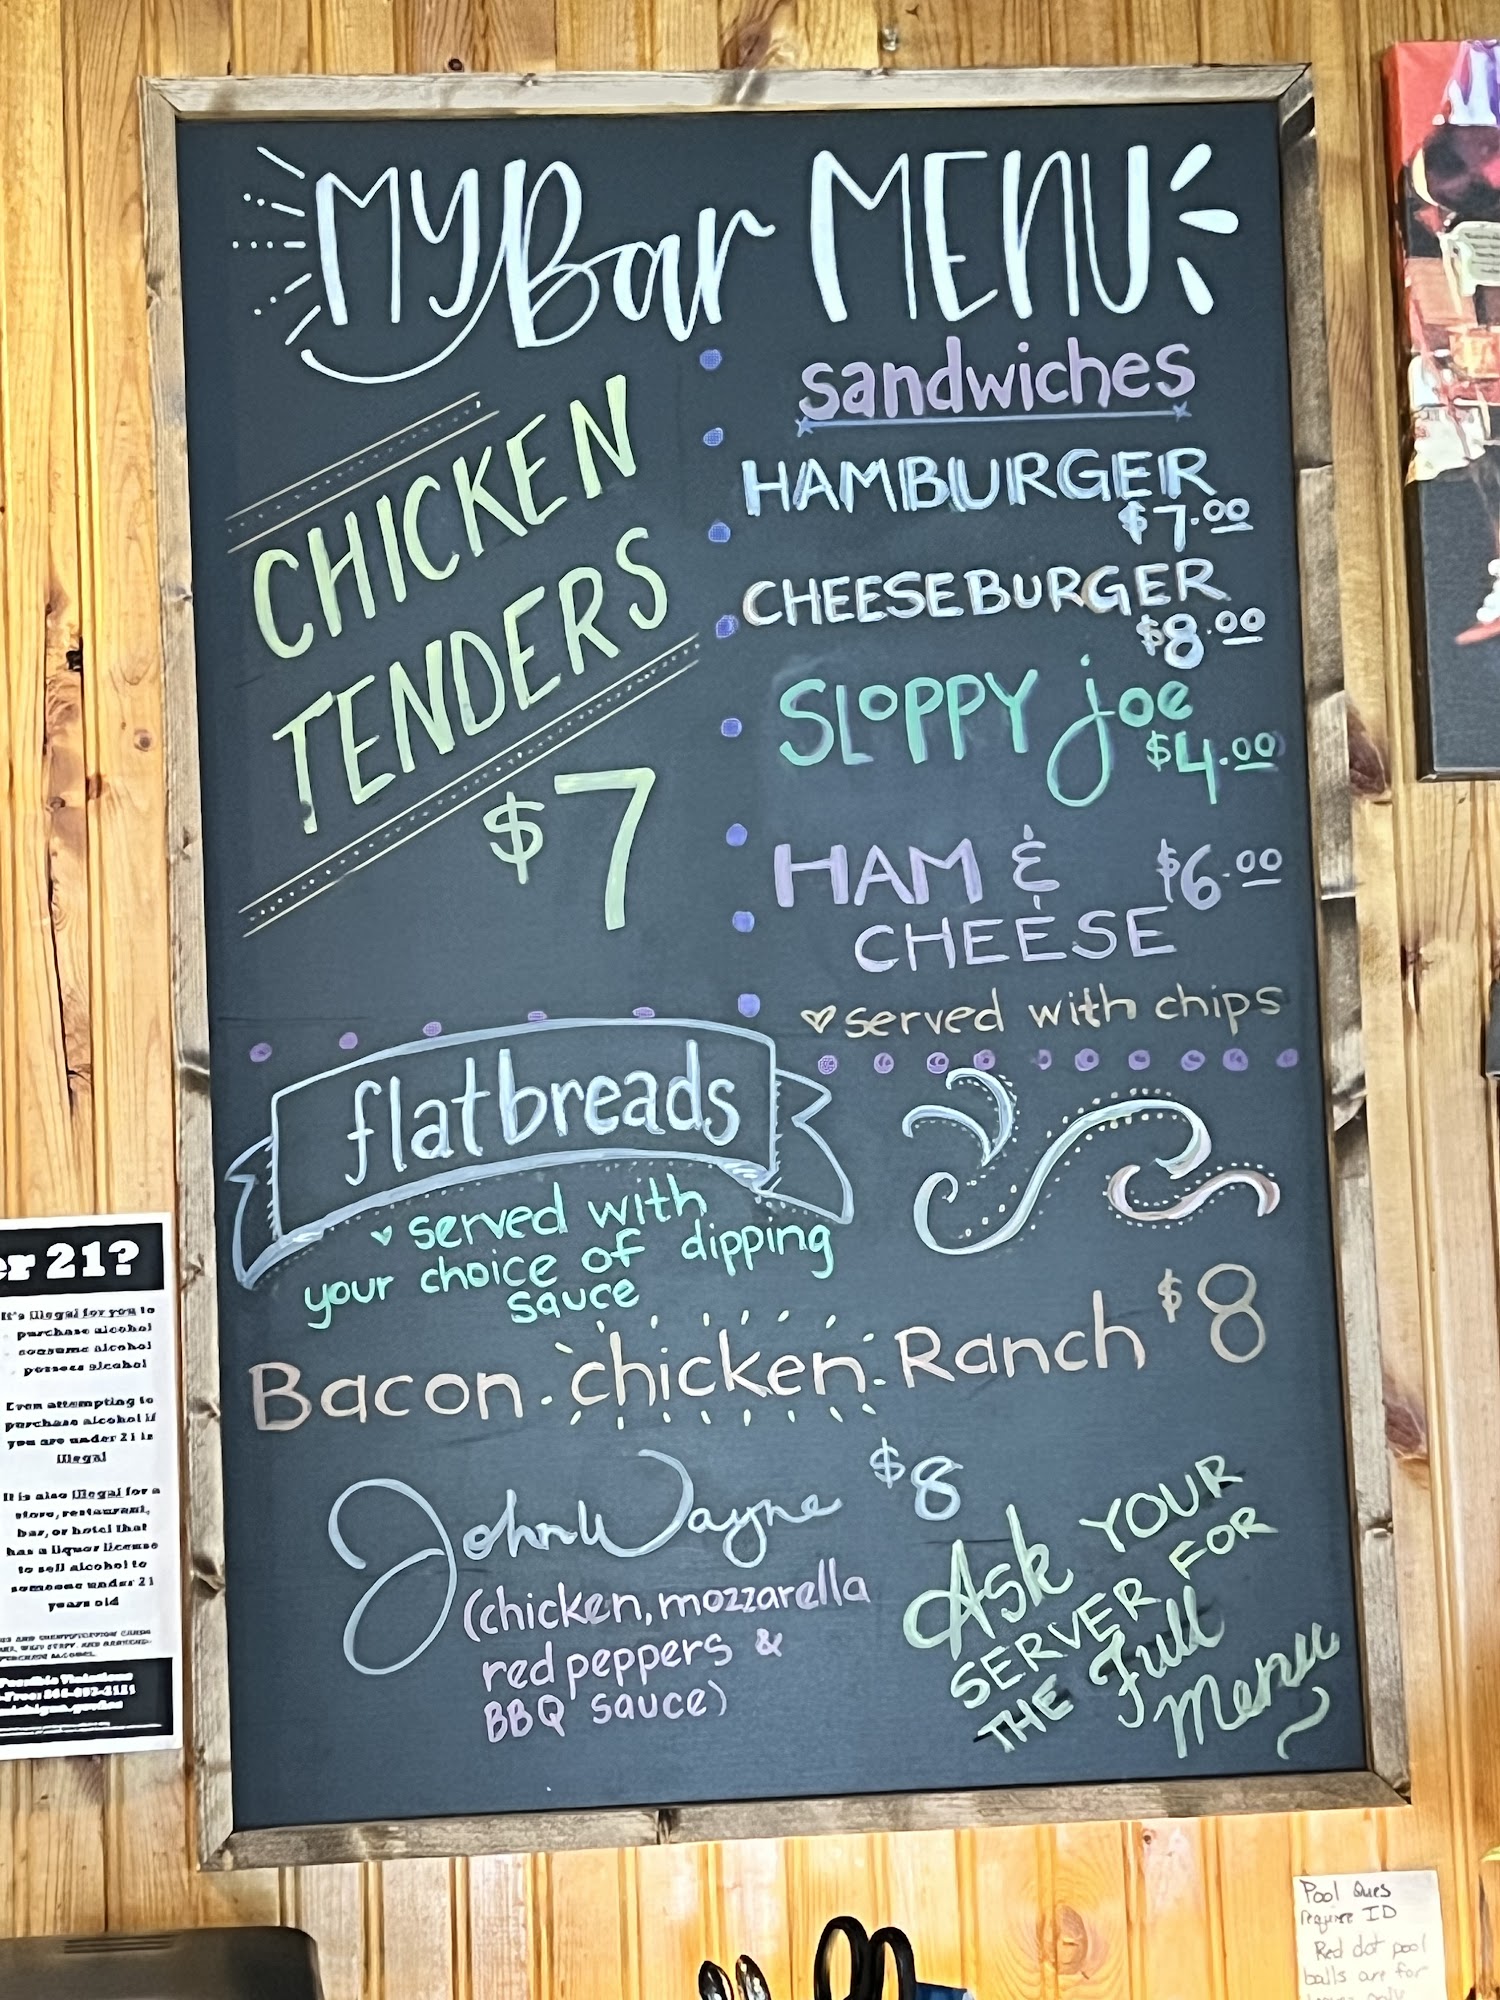 MY Bar MENU
CHICKEN
TENDERS
$7
sandwiches
HAMBURGER
$7.00
CHEESEBURGER
$8.00
SLOPPY joe
$4.00
HAM & $6.00
CHEESE
served with chips
flatbreads
served with
your choice of dipping
sauce
Bacon chicken Ranch $8
John Wayne $8
(chicken, mozzarella
red peppers &
BBQ sauce)
Ask YOUR
SERVER FOR
THE Full
Menu
er 21?
It's illegal for you to
purchase alcohol
consume alcohol
possess alcohol
Even attempting to
purchase alcohol if
you are under 21 is
illegal
It is also illegal for a
store, restaurant,
bar, or hotel that
has a liquor license
to sell alcohol to
someone under 21
years old
Possible Violations
Pool Ques
require ID
Red dot pool
balls are for
only